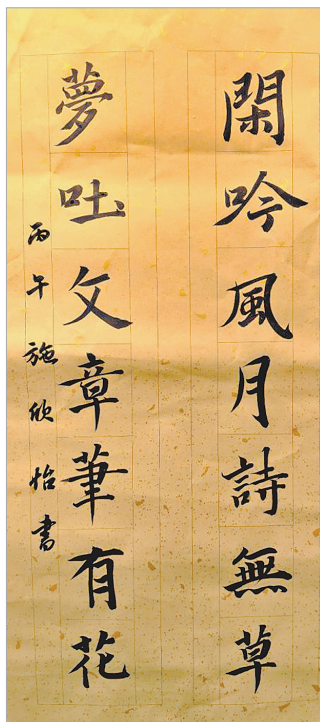 閑吟風月詩無草
夢吐文章筆有花
丙午施欣怡書